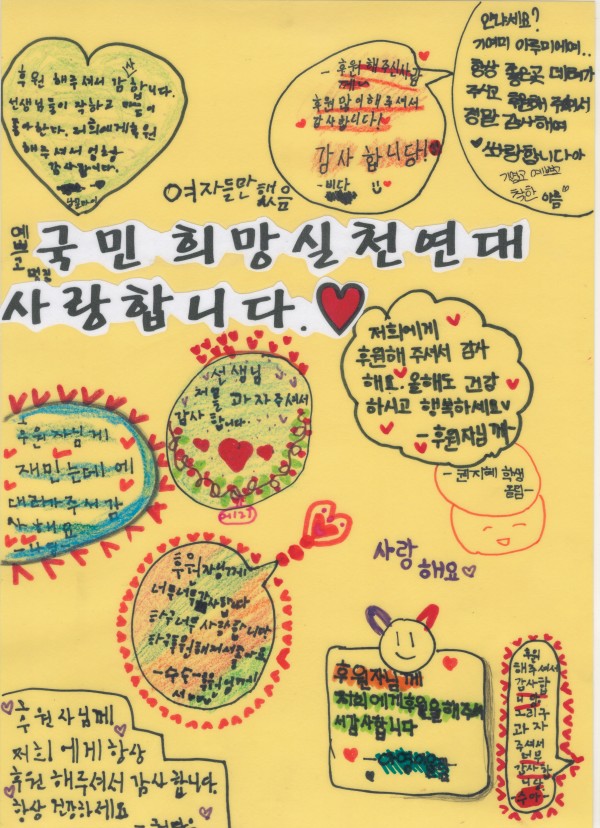 후원 해주셔서 감사합니다.
선생님들이 착하고 많이
좋아한다. 저희에게 후원
해주셔서 엄청
감사합니다.
- 후원 해주신 사람
께 -
후원 많이 해주셔서
감사합니다!
감사합니당!
안냐세요?
기여미 이루미에여..
항상 좋은곳 데려가
주시고 후원해 주셔서
정말 감사해여
♥ 쏴랑합니다아
기엽고 예쁘고
착한 이름
여자들만 했음
예쁘고 멋진
국민 희망실천연대
사랑합니다.♥
선생님
저희를 과자주셔서
감사합니다...
저희에게
후원해 주셔서 감사
해요. 올해도 건강
하시고 행복하세요
- 후원자님께 -
- 권지혜 학생
올림 -
후원자님께
재밌는데에
대리가주서 감
사해요
후원자생께
너무너무 감사합니다
사랑합니다
사랑
해요
후원자님께
저희에게 후원을 해주셔
서 감사합니다
후원
해주셔서
감사합
니다
놀리구
과자
주셔서
너무
감사합
니당
- 수아 -
후원자님께
저희에게 항상
후원 해주셔서 감사합니다.
항상 건강하세요